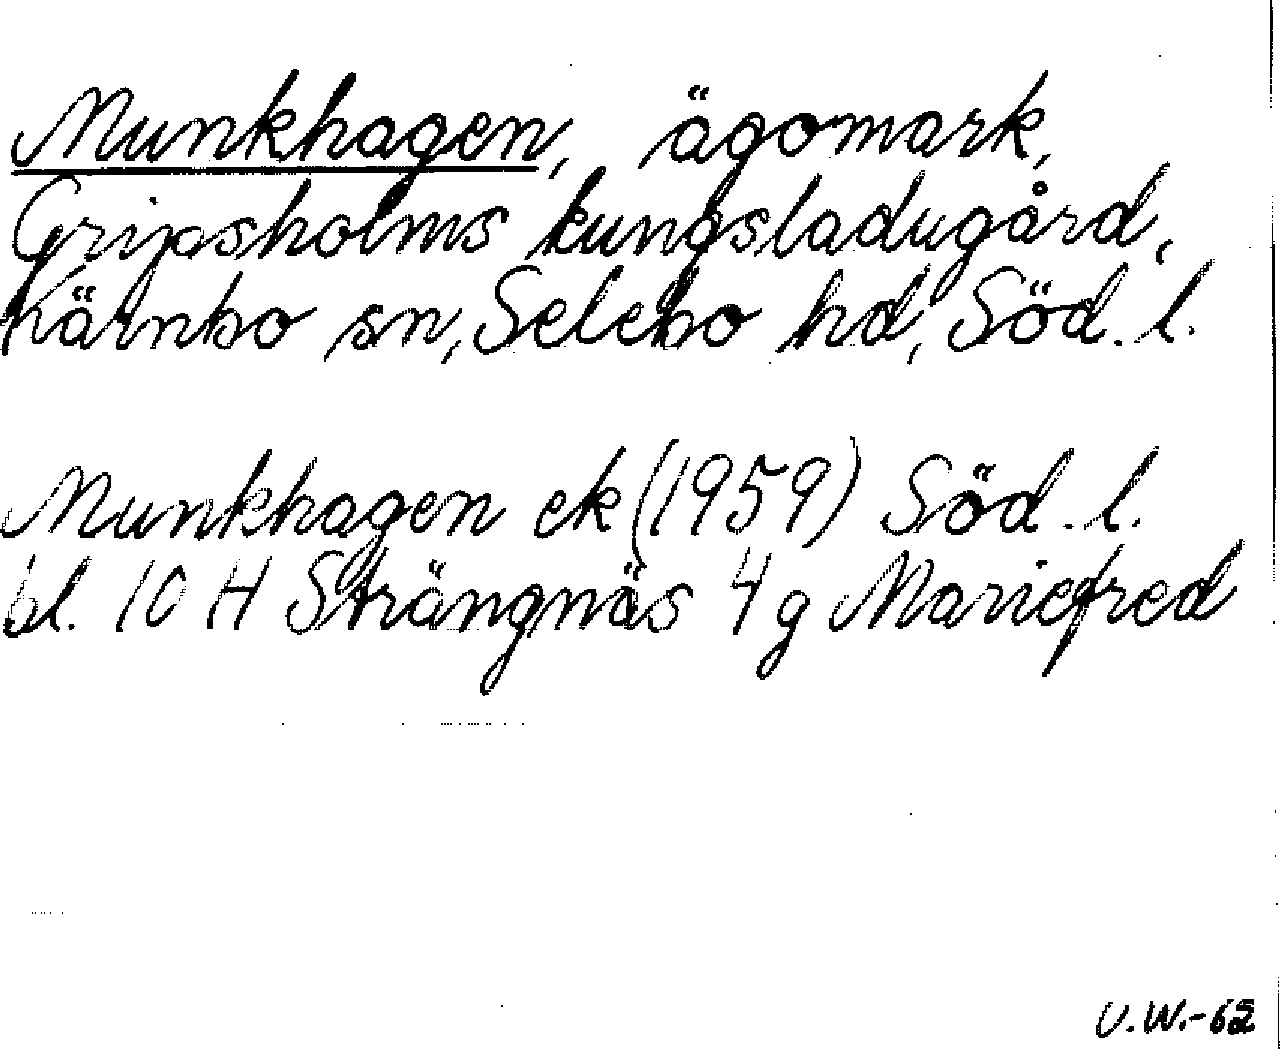 Munkhagen, ägomark,
Gripsholms kungsladugård,
Kärnbo sn, Selebo hd, Söd. l.
Munkhagen ek (1959) Söd. l.
bl. 10 H Strängnäs 4 g Mariefred
U.W.-62